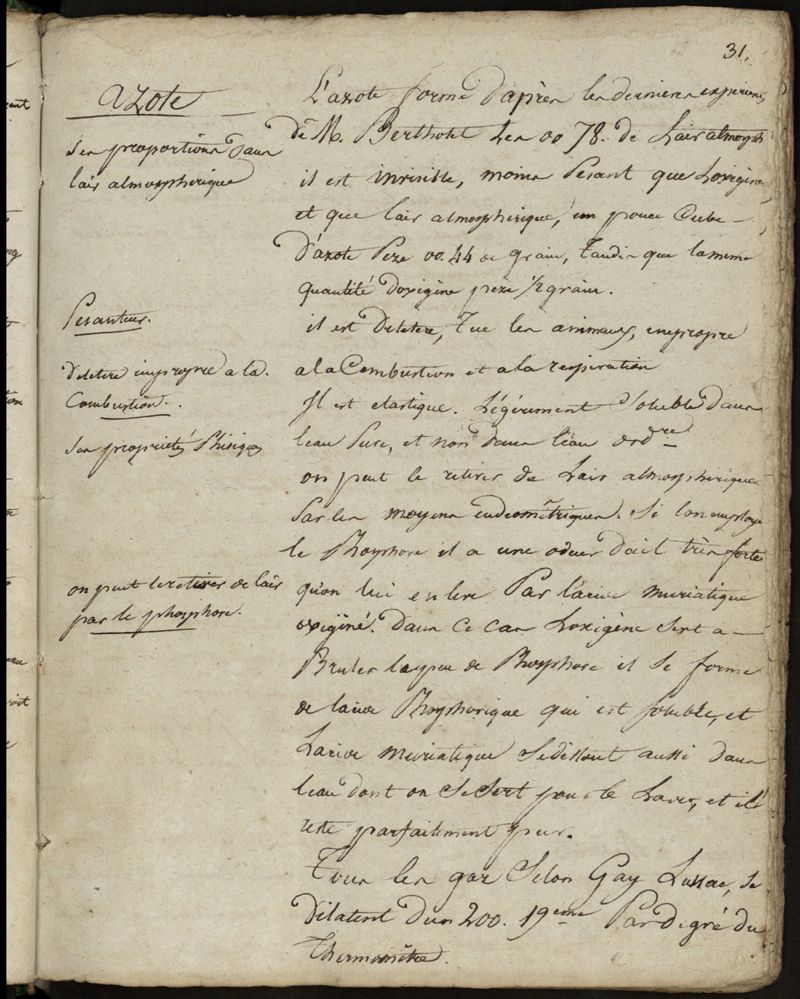 31.
azote
Ses proportions dans
lair atmospherique
L'azote forme d'après les dernieres experiences
de M. Berthollet les 00 78. de Lair atmosph
il est invisible, moins Pesant que Loxigene,
et que lair atmospherique, un pouce Cube
D'azote Peze 00.44 de grain, Tandis que la meme
quantité doxigène pèze 1/2 grain.
Pesanteur.
il est Deletere, Tue les animaux, impropre
Deletere impropre a la
Combustion.
a la Combustion et a la respiration
Il est elastique. Légérement Soluble dans
Ses propriétés Phisiques
leau Pure, et non dans l'eau ordre
on peut le retirer de Lair atmospherique
Par les moyens eudiométriques. Si lon employe
le Phosphore il a une odeur d'ail très forte
on peut le retirer de lair
par le phosphore.
qu'on lui enleve Par lacide muriatique
oxigéné. Dans ce cas Loxigène sert a
Bruler le peu de Phosphore il se forme
de lacide Phosphorique qui est soluble, et
Lacide muriatique se dissout aussi dans
leau dont on se sert pour le Laver, et il
reste parfaitement pur.
Tous les gaz Selon Gay Lussac, se
Dilatent d'un 200. 19eme Par degré du
Thermomètre.